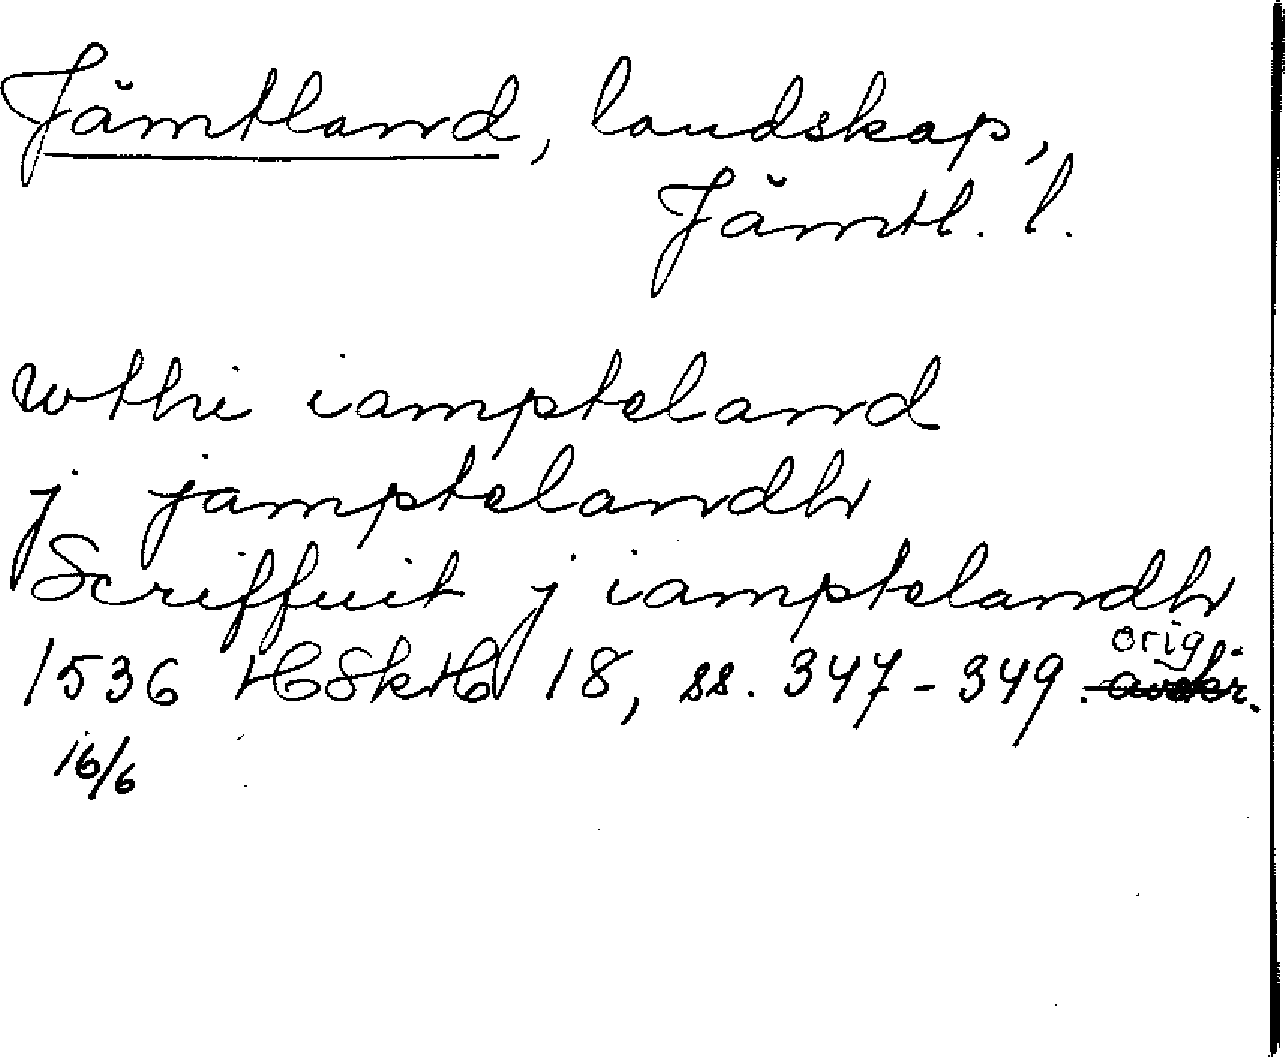 Jämtland, landskap,
Jämtl. l.
wthi iampteland
j jamptelandh
Scriffuit j iamptelandh
orig.
1536 HSkH 18, ss. 347-349. avskr.
16/6